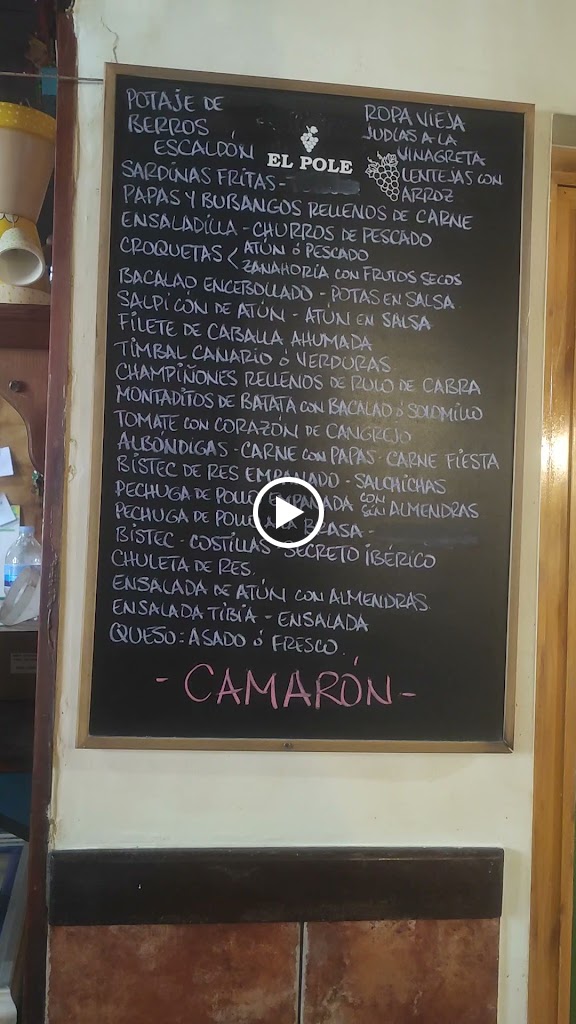 POTAJE DE
BERROS
ESCALDÓN
EL POLE
ROPA VIEJA
JUDÍAS A LA
VINAGRETA
LENTEJAS CON
ARROZ
SARDINAS FRITAS -
PAPAS Y BUBANGOS RELLENOS DE CARNE
ENSALADILLA - CHURROS DE PESCADO
CROQUETAS < ATÚN Ó PESCADO
ZANAHORÍA CON FRUTOS SECOS
BACALAO ENCEBOLLADO - POTAS EN SALSA
SALPICÓN DE ATÚN - ATÚN EN SALSA
FILETE DE CABALLA AHUMADA
TIMBAL CANARIO Ó VERDURAS
CHAMPIÑONES RELLENOS DE RULO DE CABRA
MONTADITOS DE BATATA CON BACALAO Ó SOLOMILLO
TOMATE CON CORAZÓN DE CANGREJO
ALBÓNDIGAS - CARNE CON PAPAS - CARNE FIESTA
BISTEC DE RES EMPANADO - SALCHICHAS
PECHUGA DE POLLO EMPANADA CON SIN ALMENDRAS
PECHUGA DE POLLO A LA BRASA -
BISTEC - COSTILLAS - SECRETO IBÉRICO
CHULETA DE RES.
ENSALADA DE ATÚN CON ALMENDRAS
ENSALADA TIBIA - ENSALADA
QUESO: ASADO Ó FRESCO.
- CAMARÓN -